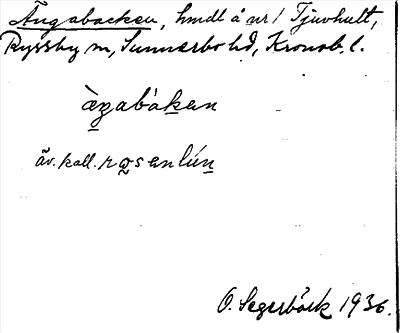 Ängabacken, hmdl å nr 1 Tjuvhult,
Ryssby sn, Sunnerbo hd, Kronob. l.
ä̀ŋabàkən
äv. kall. rosənlún
O. Segerbäck 1936.